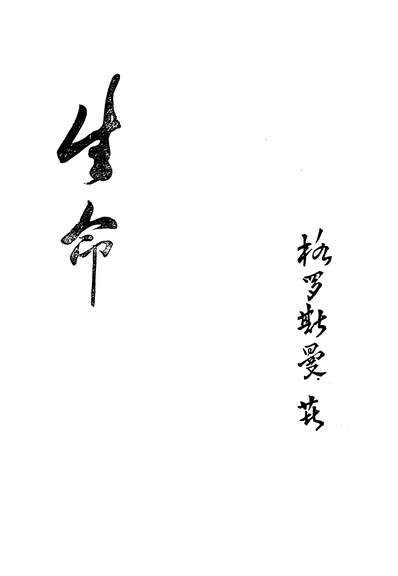 生命
格罗斯曼著